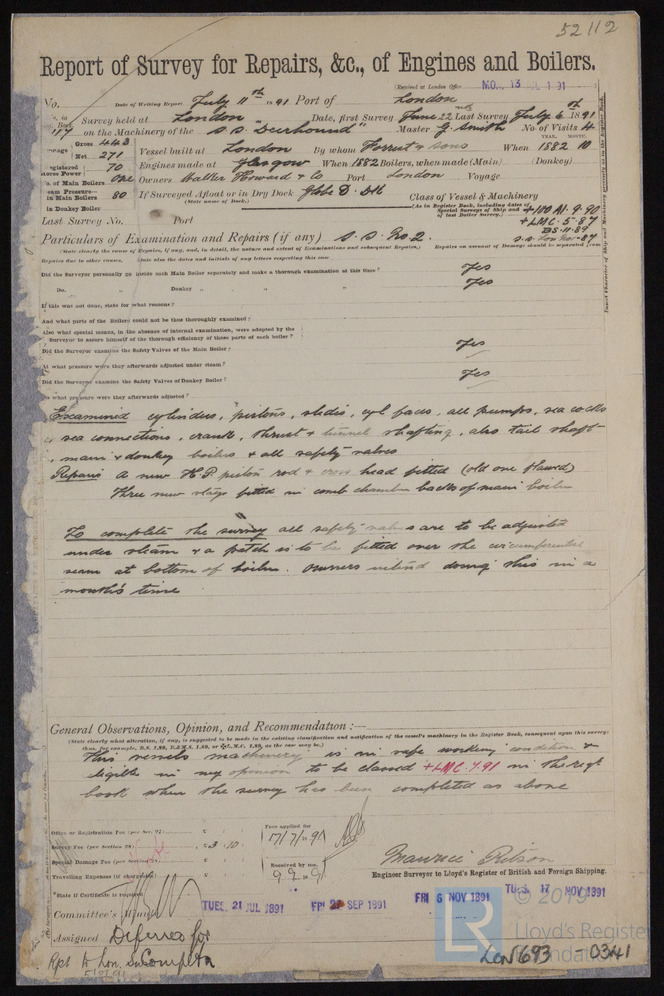 52112
Report of Survey for Repairs, &c., of Engines and Boilers.
(Received at London Office MO. 13 JUL 1 91
No. Date of Writing Report July 11th 1891 Port of London
Survey held at London Date, first Survey June 22nd Last Survey July 6th 1891
on the Machinery of the S.S. "Deerhound" Master G. Smith No. of Visits 4
Gross 443
Net 271
Vessel built at London By whom Forrest & Sons When 1882 10
YEAR. MONTH.
Registered 70 Engines made at Glasgow When 1882 Boilers, when made (Main) (Donkey)
No. of Main Boilers One Owners Walter Howard & Co Port London Voyage
Steam Pressure in Main Boilers 80 If Surveyed Afloat or in Dry Dock Globe D. Dk
(State name of Dock.)
in Donkey Boiler
Class of Vessel & Machinery
(As in Register Book, including dates of Special Surveys of Ship and of last Boiler Survey.)
+100 A1. 9.90
+LMC. 5.87
BS. 11.89
Last Survey No. Port
S.S. Lon No. -87
Particulars of Examination and Repairs (if any) S.S. No 2.
Repairs on account of Damage should be separated from
Repairs due to other causes. (State also the dates and initials of any letters respecting this case
Did the Surveyor personally go inside each Main Boiler separately and make a thorough examination at this time? Yes
Do. Donkey " " Yes
If this was not done, state for what reasons?
And what parts of the Boilers could not be thus thoroughly examined?
Also what special means, in the absence of internal examination, were adopted by the
Surveyor to assure himself of the thorough efficiency of those parts of each boiler?
Did the Surveyor examine the Safety Valves of the Main Boiler? Yes
At what pressure were they afterwards adjusted under steam?
Did the Surveyor examine the Safety Valves of Donkey Boiler? Yes
At what pressure were they afterwards adjusted?
Examined cylinders, pistons, slides, cyl faces, all pumps, sea cocks
& sea connections, crank, thrust & tunnel shafting, also tail shaft
, main & donkey boilers & all safety valves
Repairs A new H.P. piston rod & cross head fitted (old one flawed)
Three new stays fitted in comb chamber backs of main boiler
To complete the survey all safety valves are to be adjusted
under steam & a patch is to be fitted over the circumferential
seam at bottom of boiler. Owners intend doing this in a
month's time
General Observations, Opinion, and Recommendation:—
(State clearly what alteration, if any, is suggested to be made in the existing classification and notification of the vessel's machinery in the Register Book, consequent upon this survey:
This vessels machinery is in safe working condition &
eligible in my opinion to be classed +LMC 7.91 in the regr
book when the survey has been completed as above
Office or Registration Fee (per Sec. 27) £
Survey Fee (per Section 28) £ 3.10.
Special Damage Fee (per Section 28) £
Travelling Expenses (if chargeable) £
Fee applied for
17/7/1891
Received by me,
9.9.1891
Maurice Ritson
Engineer Surveyor to Lloyd's Register of British and Foreign Shipping.
*State if Certificate is required
Committee's Minute TUES. 21 JUL 1891 FRI SEP 1891 FRI 6 NOV 1891 TUES. 17 NOV 1891
Assigned Deferred for
Completn
Rpt to Lon.
© 2019
LR
Lloyd's Register
Foundation
LON693 - 0341